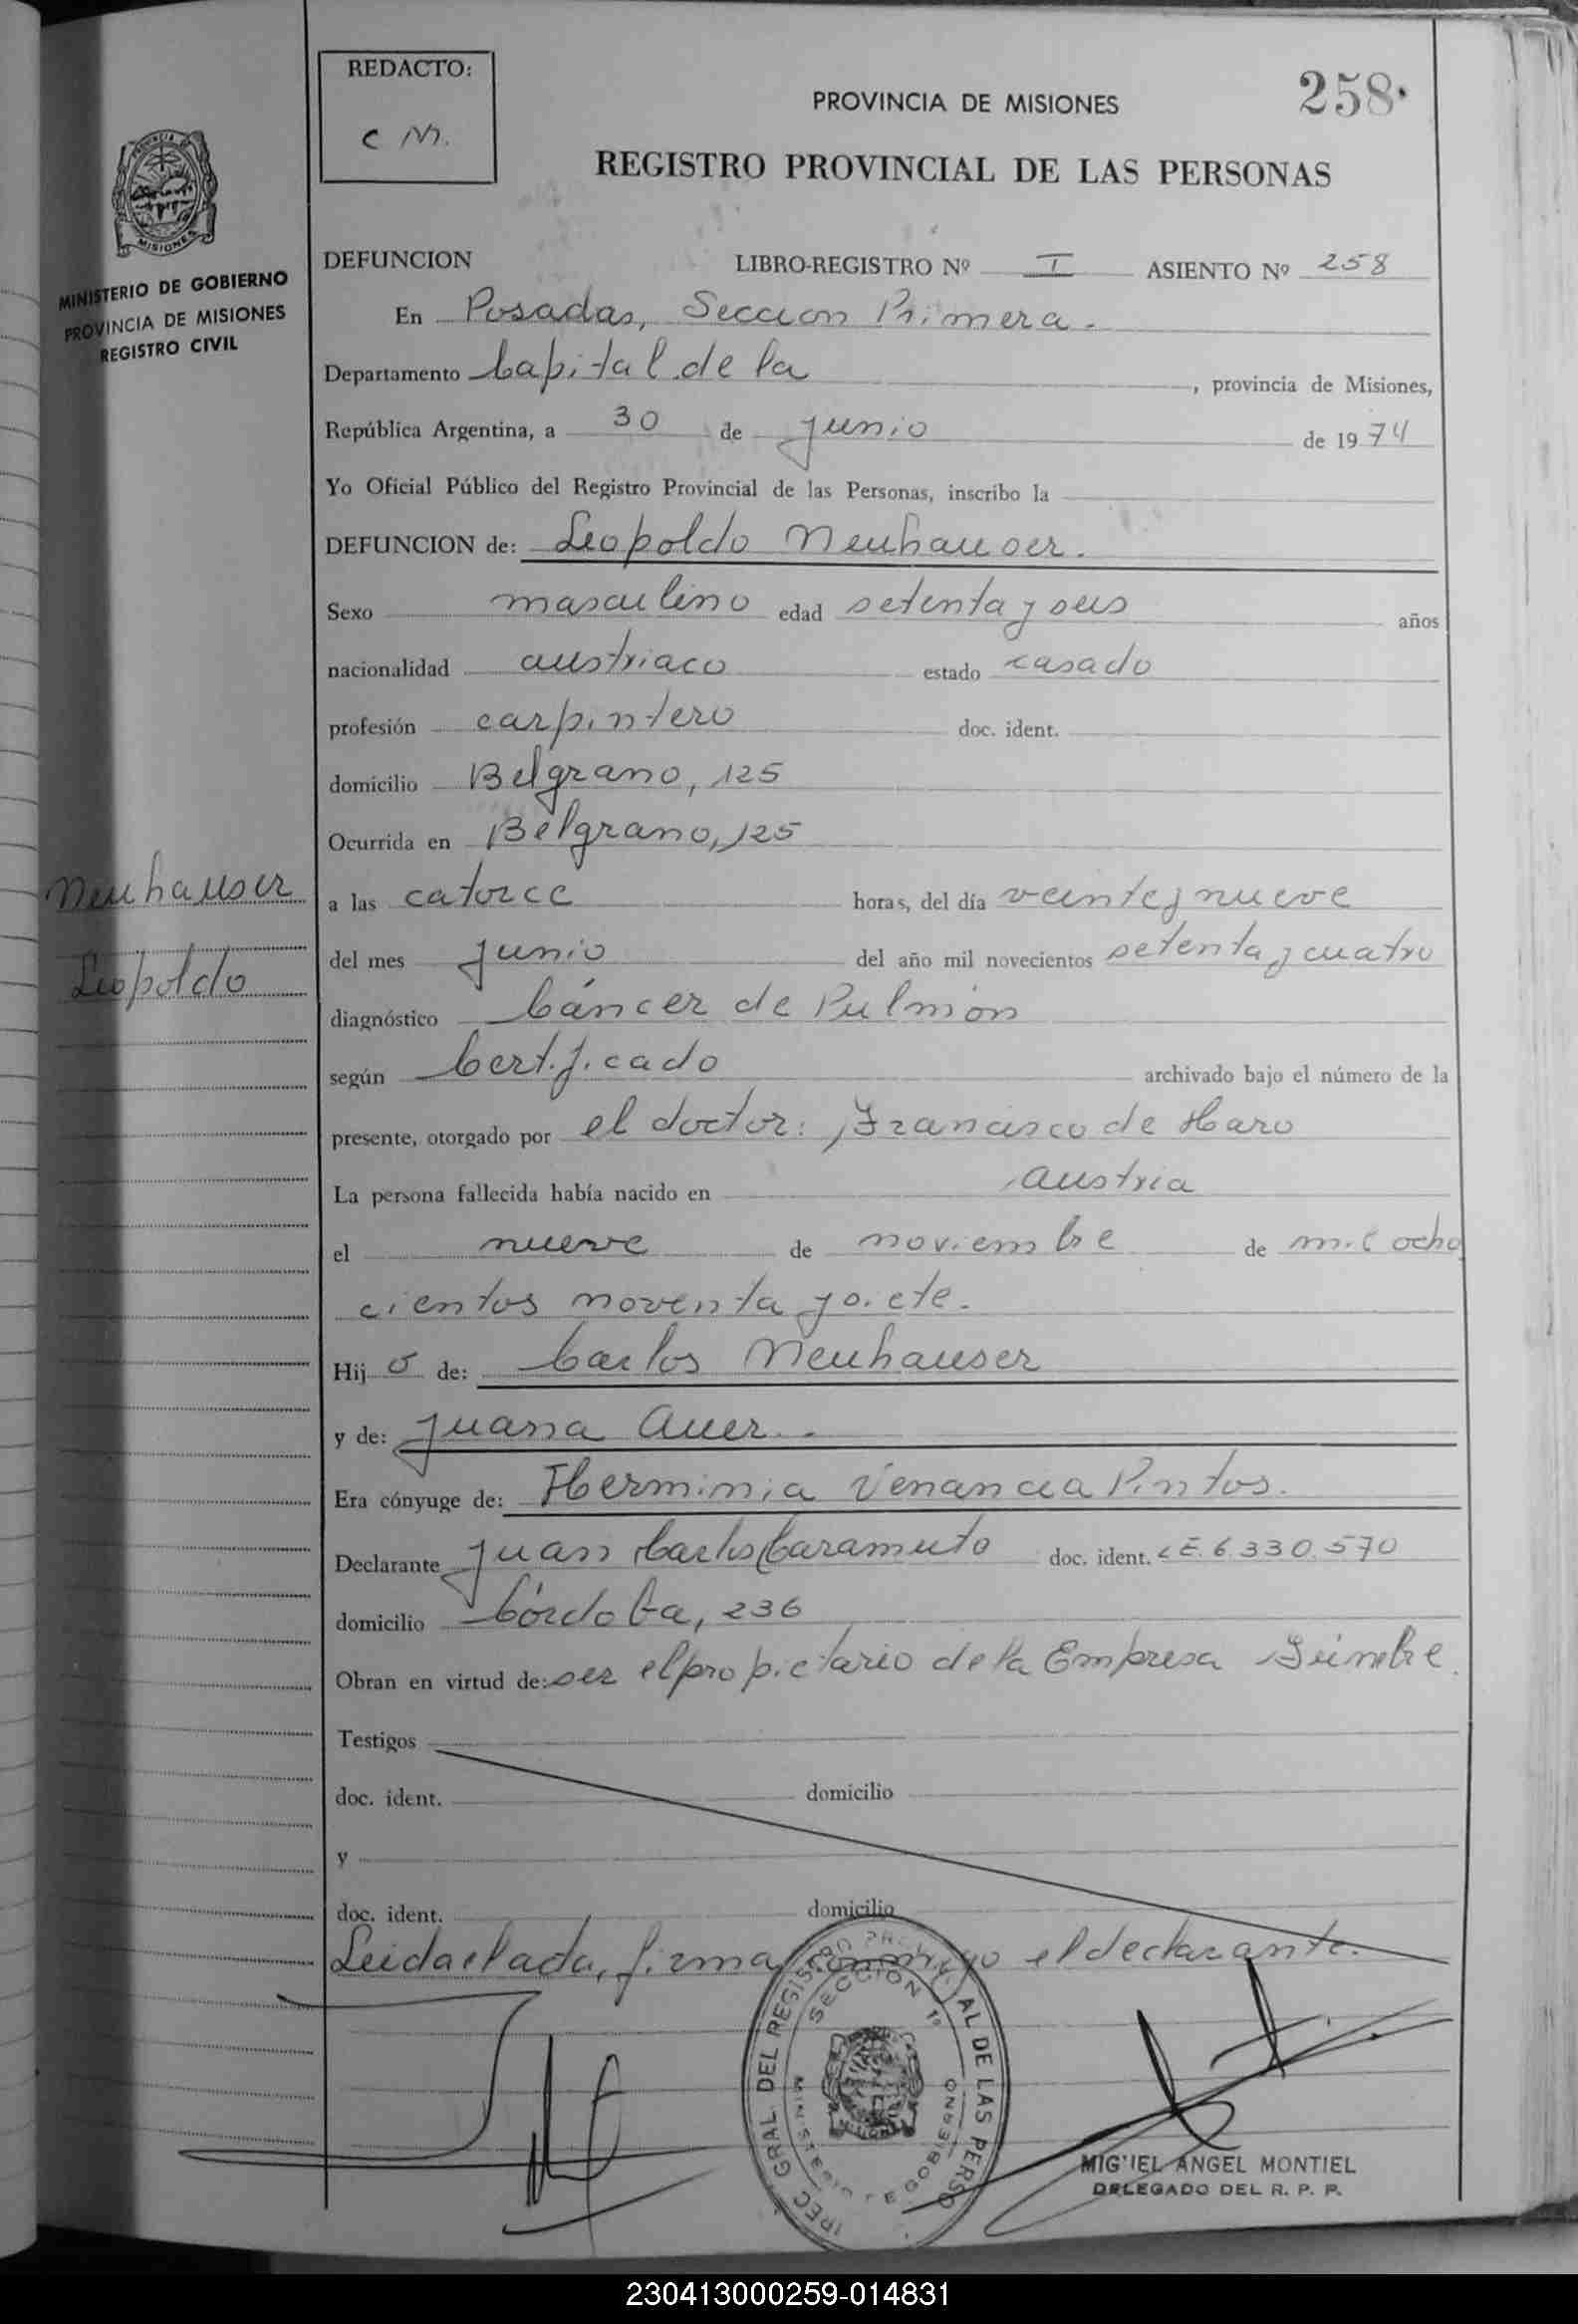 REDACTO:
C M.
PROVINCIA DE MISIONES
258.
REGISTRO PROVINCIAL DE LAS PERSONAS
MISIONES
MINISTERIO DE GOBIERNO
PROVINCIA DE MISIONES
REGISTRO CIVIL
DEFUNCION LIBRO-REGISTRO Nº I ASIENTO Nº 258
En Posadas, Seccion Primera.
Departamento Capital de la , provincia de Misiones,
República Argentina, a 30 de junio de 1974
Yo Oficial Público del Registro Provincial de las Personas, inscribo la
DEFUNCION de: Leopoldo Neuhauser.
Sexo masculino edad setenta y seis años
nacionalidad austriaco estado casado
profesión carpintero doc. ident.
domicilio Belgrano, 125
Ocurrida en Belgrano, 125
Neuhauser
Leopoldo
a las catorce horas, del día veinte y nueve
del mes junio del año mil novecientos setenta y cuatro
diagnóstico Cáncer de Pulmón
según Certificado archivado bajo el número de la
presente, otorgado por el doctor: Francisco de Haro
La persona fallecida había nacido en Austria
el nueve de noviembre de mil ocho
cientos noventa y siete.
Hijo de: Carlos Neuhauser
y de: Juana Auer.
Era cónyuge de: Herminia Venancia Pintos.
Declarante Juan Carlos Caramuto doc. ident. LE. 6.330.570
domicilio Córdoba, 236
Obran en virtud de: ser el propietario de la Empresa Fúnebre.
Testigos
doc. ident. domicilio
y
doc. ident. domicilio
Leida el acta, firma conmigo el declarante.
GRAL. DEL REGISTRO PROVINCIAL DE LAS PERSO
SECCION 1º
MINISTERIO DE GOBIERNO
MIGUEL ANGEL MONTIEL
DELEGADO DEL R. P. P.
230413000259-014831